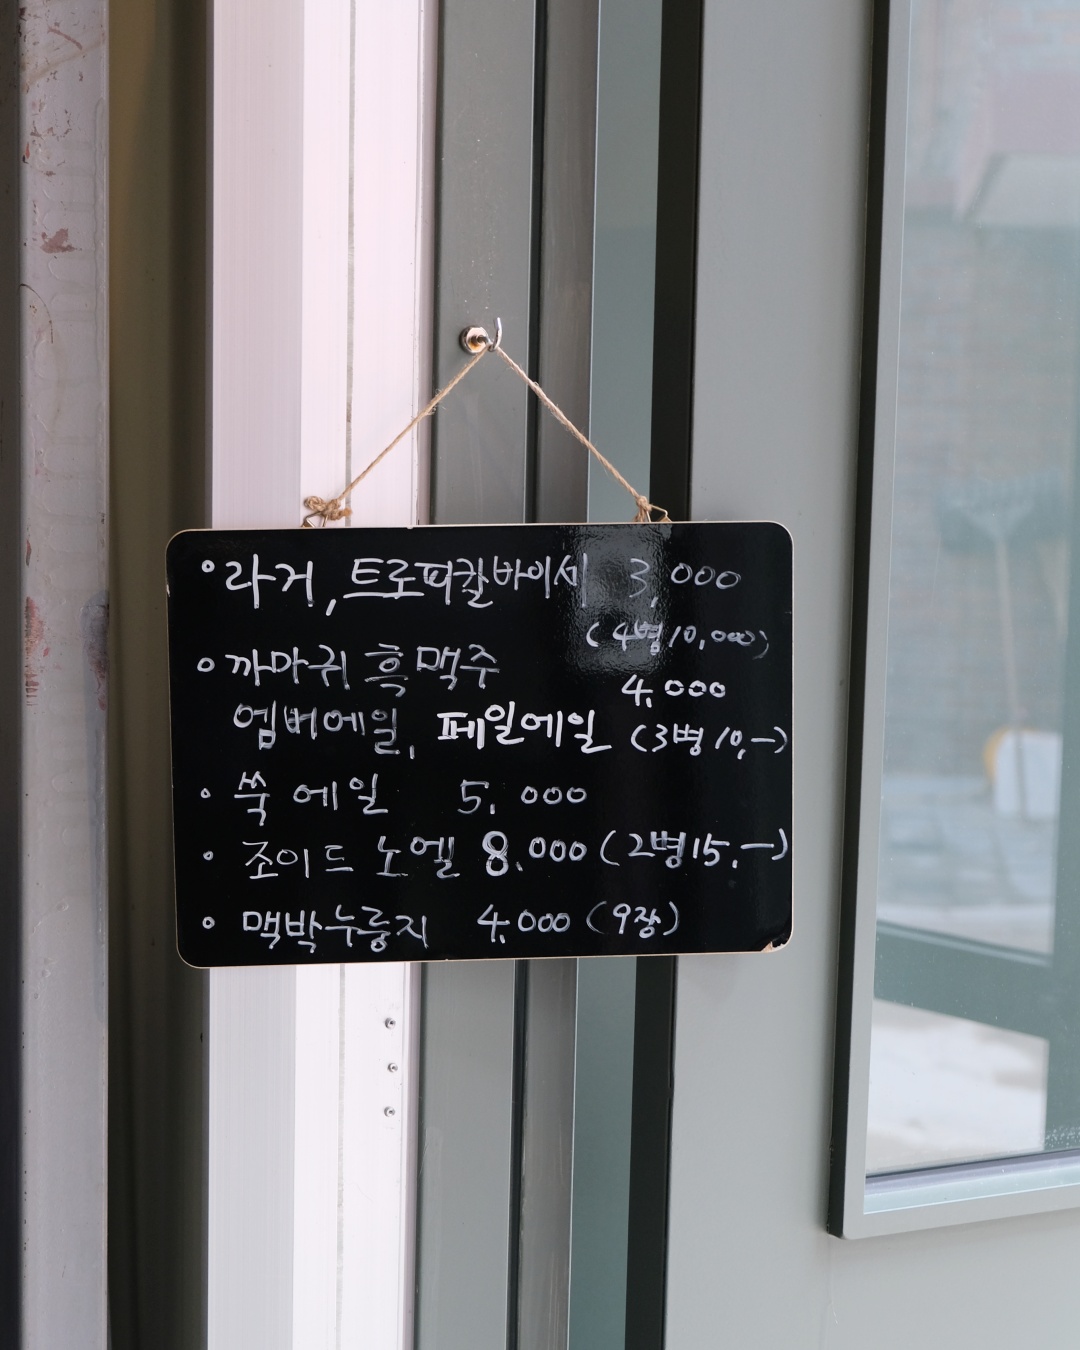 ° 라거, 트로피칼바이세 3,000
(4병 10,000)
° 까마귀 흑맥주
4,000
엠버에일, 페일에일 (3병 10,-)
· 쑥 에일 5,000
· 조이드 노엘 8,000 (2병 15,-)
° 맥박누룽지 4,000 (9장)